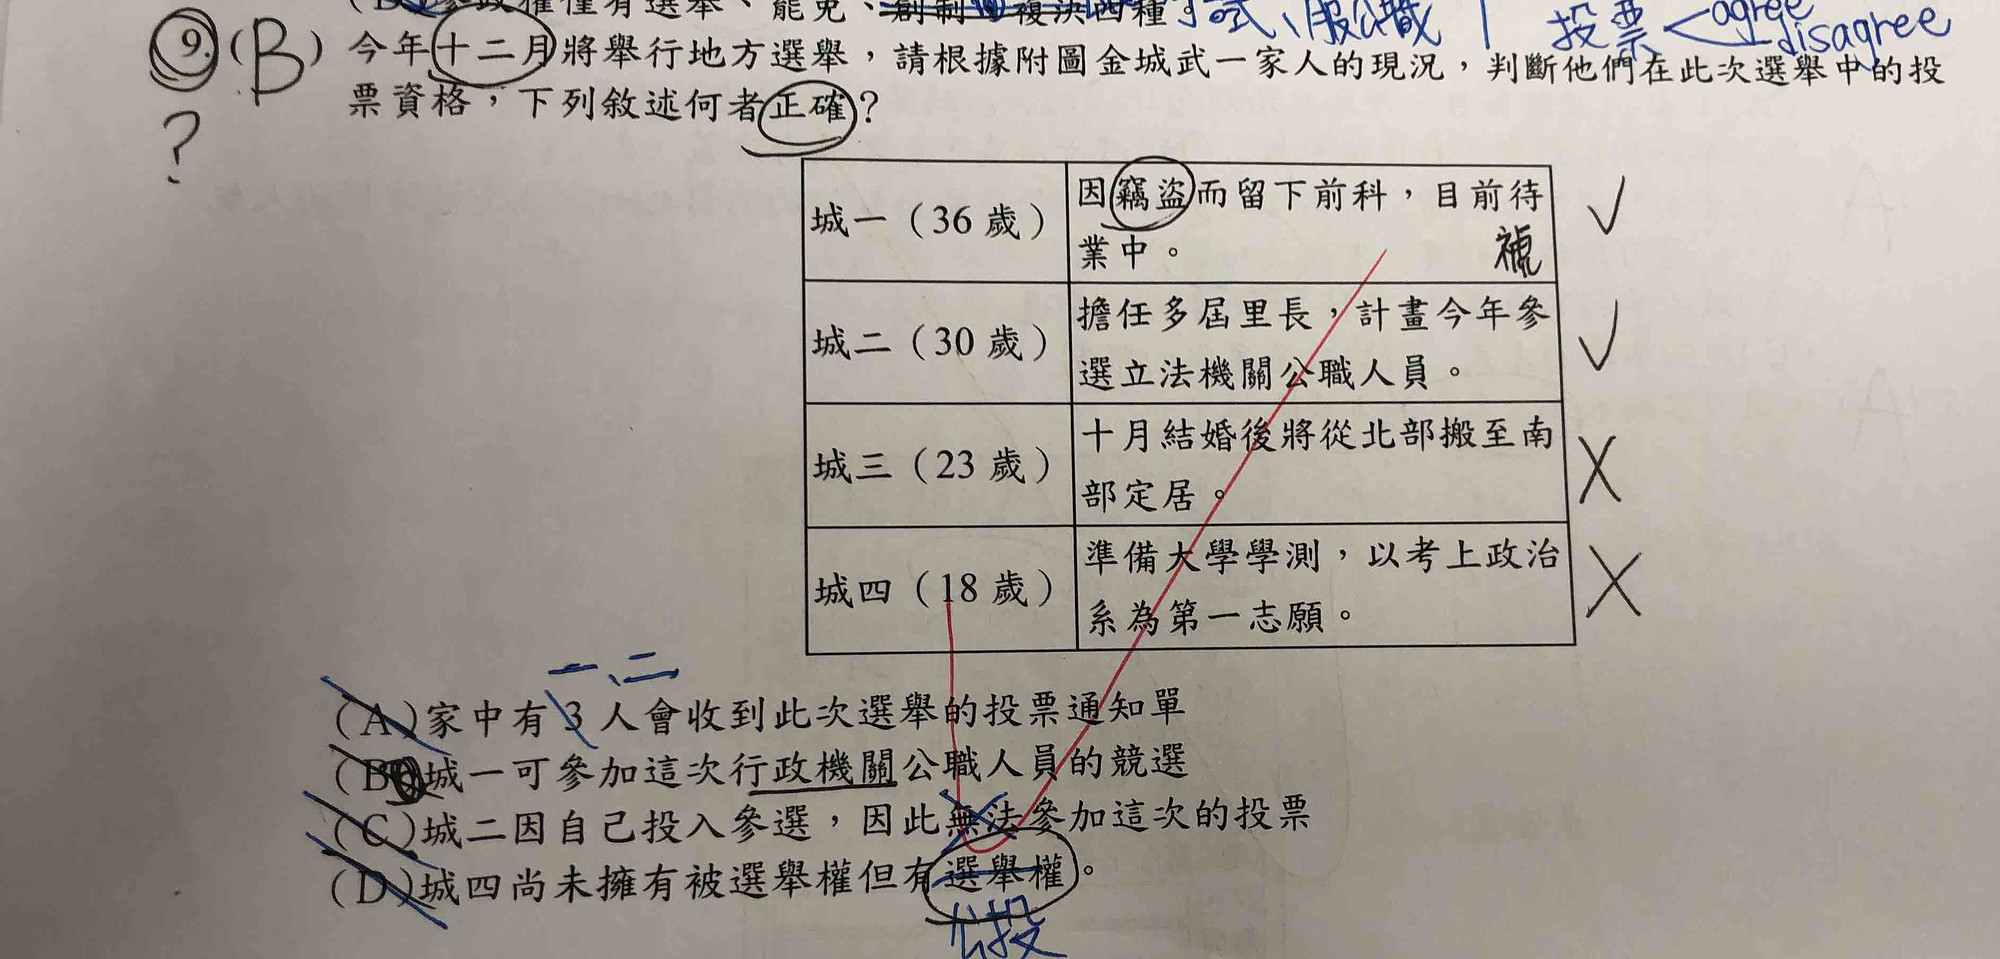 參政權僅有選舉、罷免、創制、複決四種。試、服公職 投票 agree
disagree
9.(B) 今年十二月將舉行地方選舉,請根據附圖金城武一家人的現況,判斷他們在此次選舉中的投
? 票資格,下列敘述何者正確?
城一(36 歲) 因竊盜而留下前科,目前待
業中。 褫 ✓
城二(30 歲) 擔任多屆里長,計畫今年參
選立法機關公職人員。 ✓
城三(23 歲) 十月結婚後將從北部搬至南
部定居。 X
城四(18 歲) 準備大學學測,以考上政治
系為第一志願。 X
一、二
(A)家中有 3 人會收到此次選舉的投票通知單
(B)城一可參加這次行政機關公職人員的競選
(C)城二因自己投入參選,因此無法參加這次的投票
(D)城四尚未擁有被選舉權但有選舉權。
公投